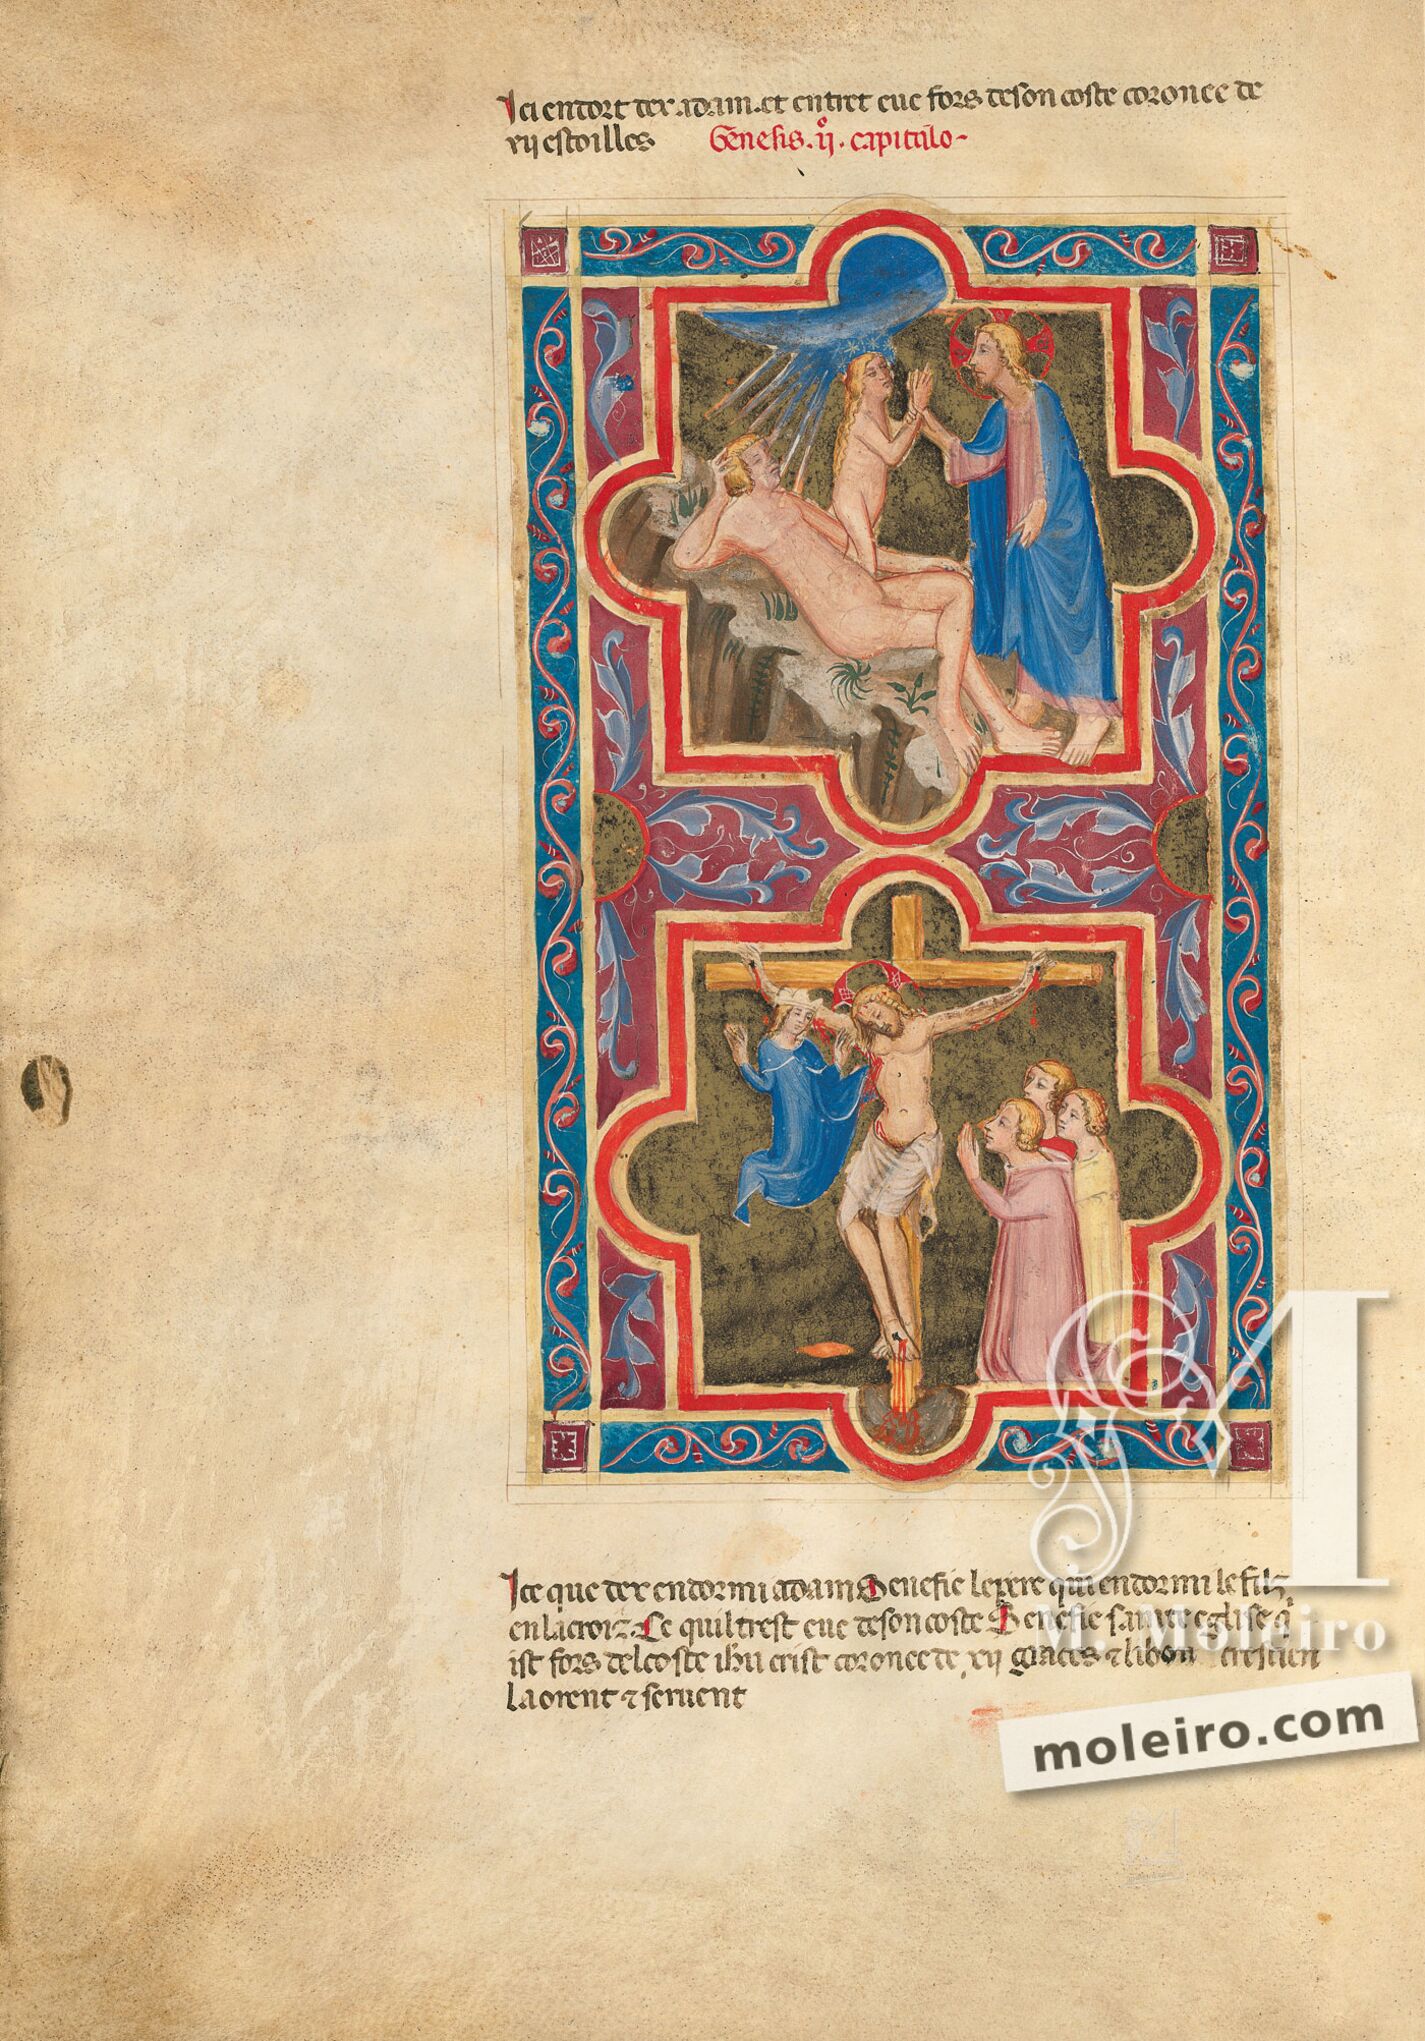 Ici endort dex. adam. et entret eue fors deson coste coronee de
xij estoilles Genesis. ijº. capitulo-
Ice que dex endormi adam Senefie lepere qui endormi le filz
enlacroiz. Ce quil trest eue deson coste Senefie sainte eglise q'
ist fors delcoste ihu crist coronee de xij graces ⁊ libon crestien
laorent ⁊ seruent
M. Moleiro
moleiro.com